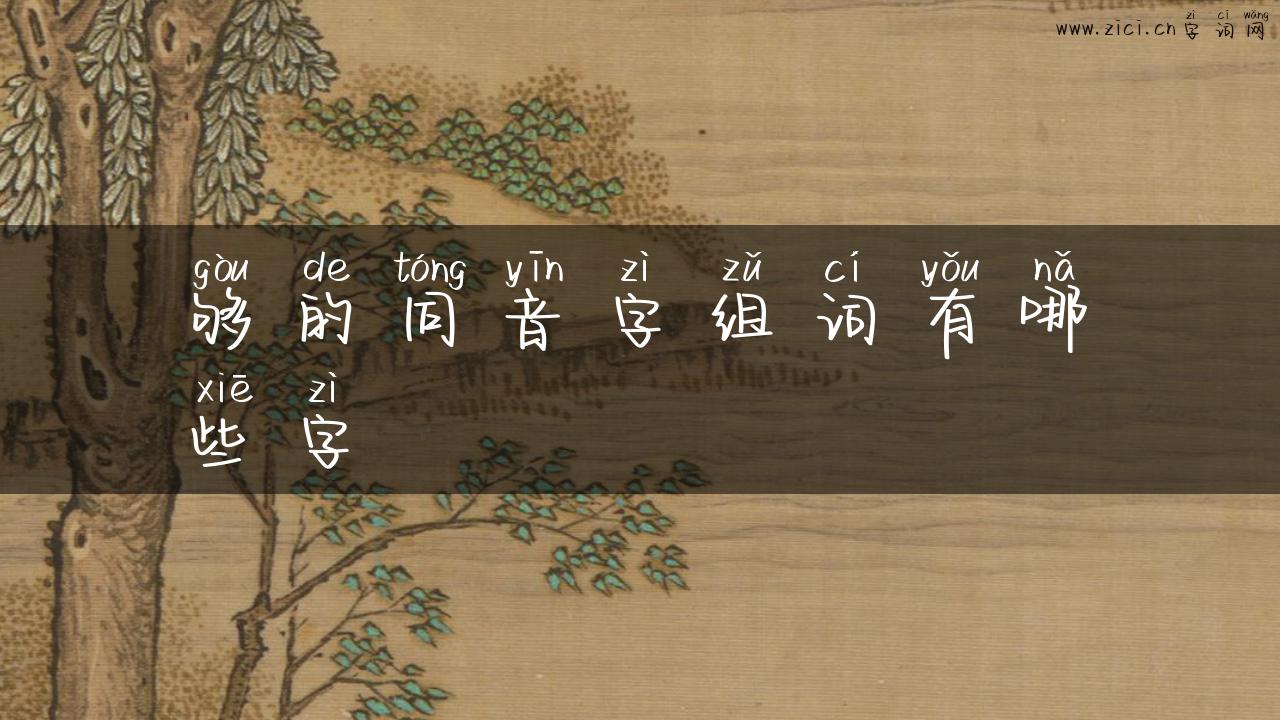 zì cí wǎng
www.zici.cn字词网
gòu de tóng yīn zì zǔ cí yǒu nǎ
够的同音字组词有哪
xiē zì
些字